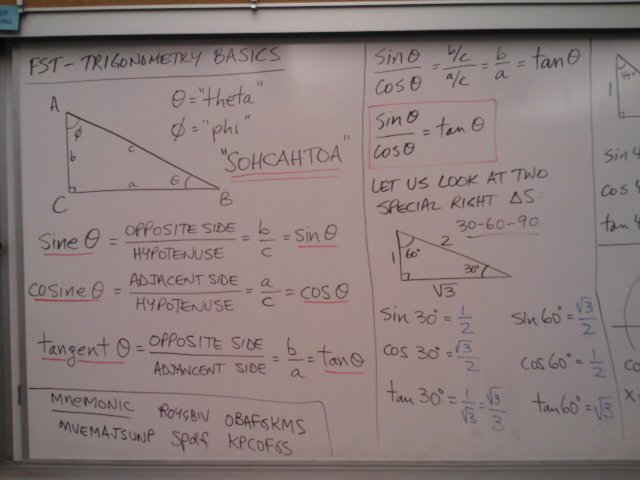 FST - TRIGONOMETRY BASICS
A
θ = "theta"
φ = "phi"
φ
b
c
a
θ
C
B
"SOHCAHTOA"
sine θ = OPPOSITE SIDE / HYPOTENUSE = b/c = sin θ
cosine θ = ADJACENT SIDE / HYPOTENUSE = a/c = cos θ
tangent θ = OPPOSITE SIDE / ADJANCENT SIDE = b/a = tan θ
MNEMONIC
ROYGBIV
OBAFGKMS
MVEMAJSUNP
spdf
KPCOFGS
sin θ / cos θ = b/c / a/c = b/a = tan θ
sin θ / cos θ = tan θ
LET US LOOK AT TWO
SPECIAL RIGHT ΔS:
30-60-90
1
60°
2
30°
√3
sin 30° = 1/2
sin 60° = √3/2
cos 30° = √3/2
cos 60° = 1/2
tan 30° = 1/√3 = √3/3
tan 60° = √3
45°
1
sin 4
cos 4
tan 4